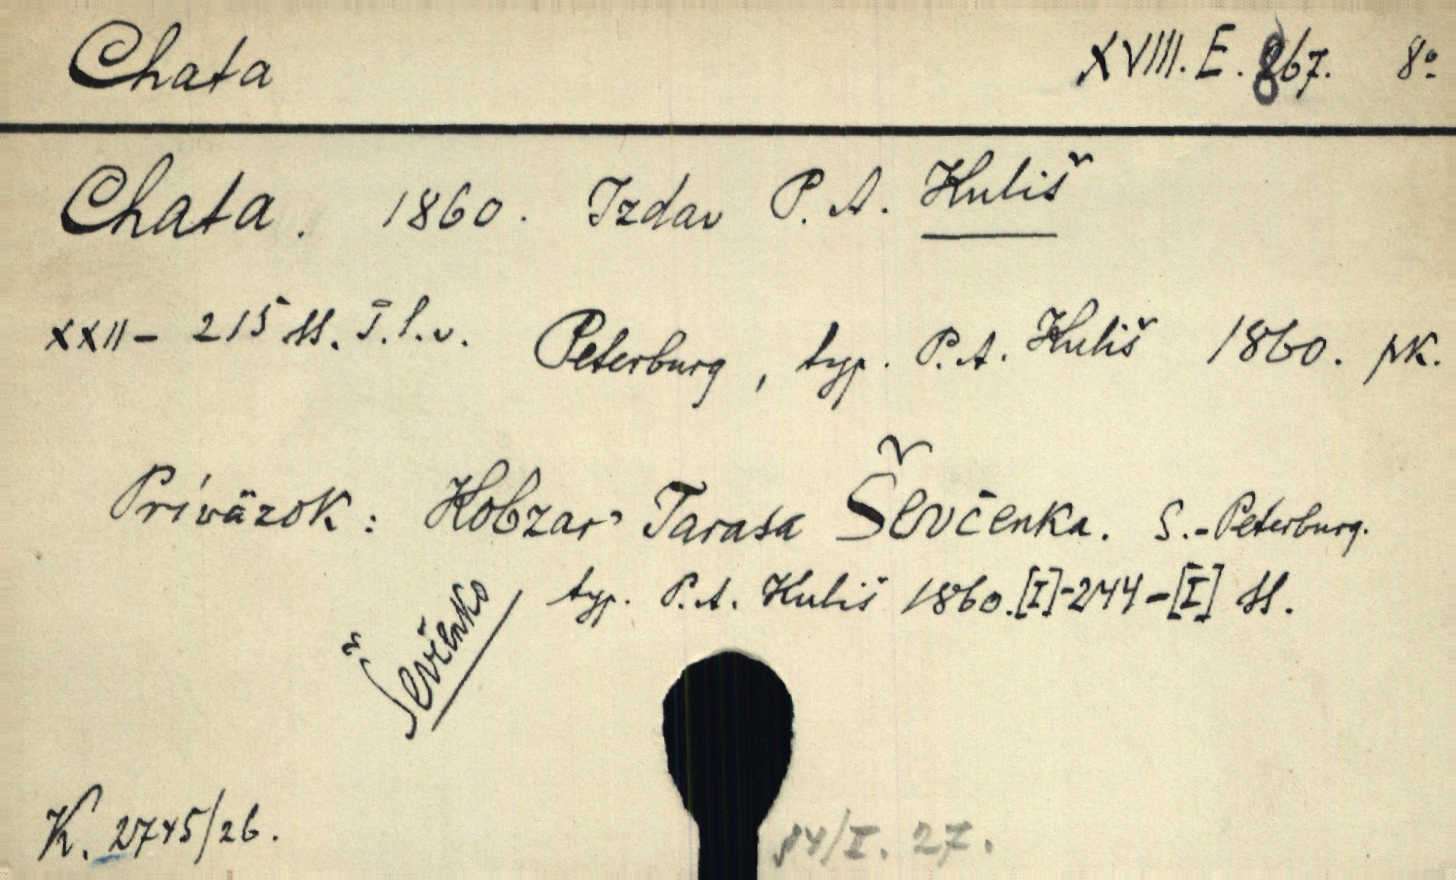 Chata XVIII. E. 867. 8º
Chata. 1860. Izdav P. A. Kuliš
XXII - 215 st. T. l. v. Peterburg, typ. P. A. Kuliš 1860. pk.
Príväzok: Kobzar' Tarasa Ševčenka. S.-Peterburg.
typ. P. A. Kuliš 1860. [I]-244-[I] st.
Ševčenko
K. 2745/26.
84/I. 27.